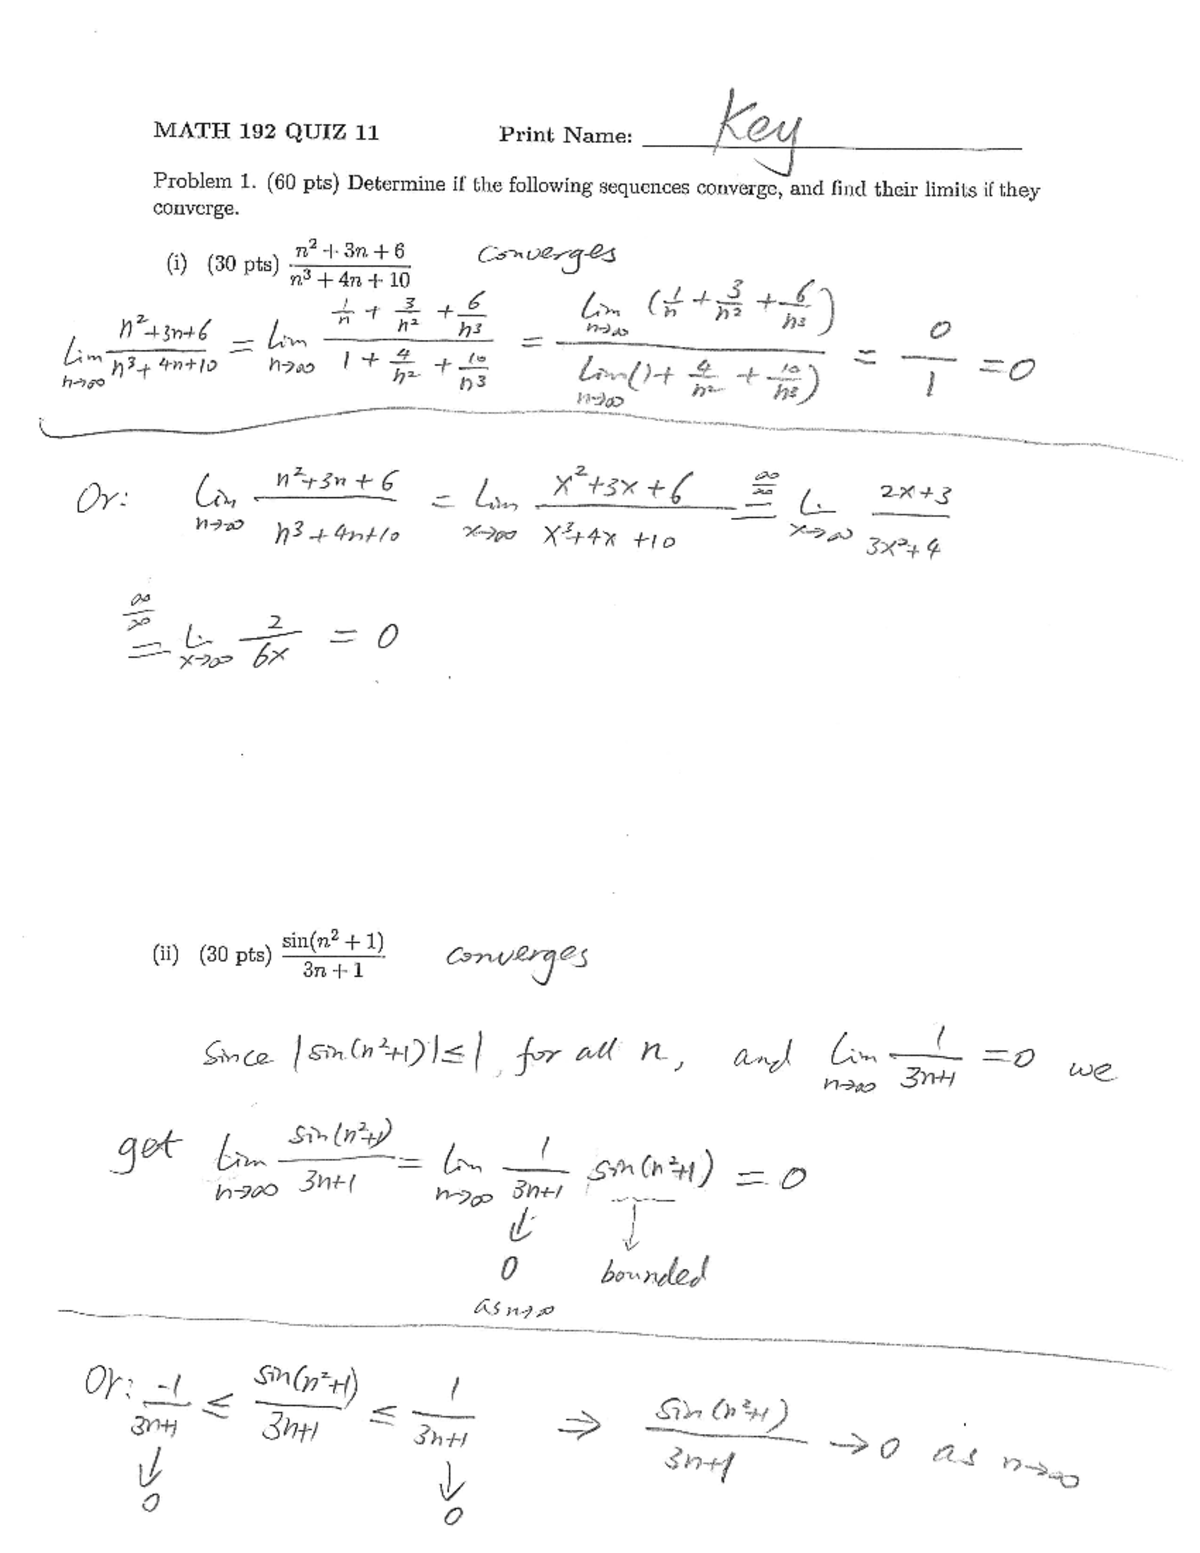 MATH 192 QUIZ 11 Print Name: Key
Problem 1. (60 pts) Determine if the following sequences converge, and find their limits if they
converge.
(i) (30 pts) (n² + 3n + 6)/(n³ + 4n + 10) Converges
lim n→∞ (n²+3n+6)/(n³+4n+10) = lim n→∞ (1/n + 3/n² + 6/n³)/(1 + 4/n² + 10/n³) = (lim n→∞ (1/n + 3/n² + 6/n³))/(lim n→∞ (1 + 4/n² + 10/n³)) = 0/1 = 0
Or: lim n→∞ (n²+3n+6)/(n³+4n+10) = lim x→∞ (x²+3x+6)/(x³+4x+10) ∞/∞ = li x→∞ (2x+3)/(3x²+4)
∞/∞ = li x→∞ 2/6x = 0
(ii) (30 pts) sin(n² + 1)/(3n + 1) converges
Since |sin(n²+1)| ≤ 1, for all n, and lim n→∞ 1/(3n+1) = 0 we
get lim n→∞ sin(n²+1)/(3n+1) = lim n→∞ 1/(3n+1) sin(n²+1) = 0
↓ ↓
0 bounded
as n→∞
Or: -1/(3n+1) ≤ sin(n²+1)/(3n+1) ≤ 1/(3n+1) ⇒ sin(n²+1)/(3n+1) → 0 as n→∞
↓ ↓
0 0